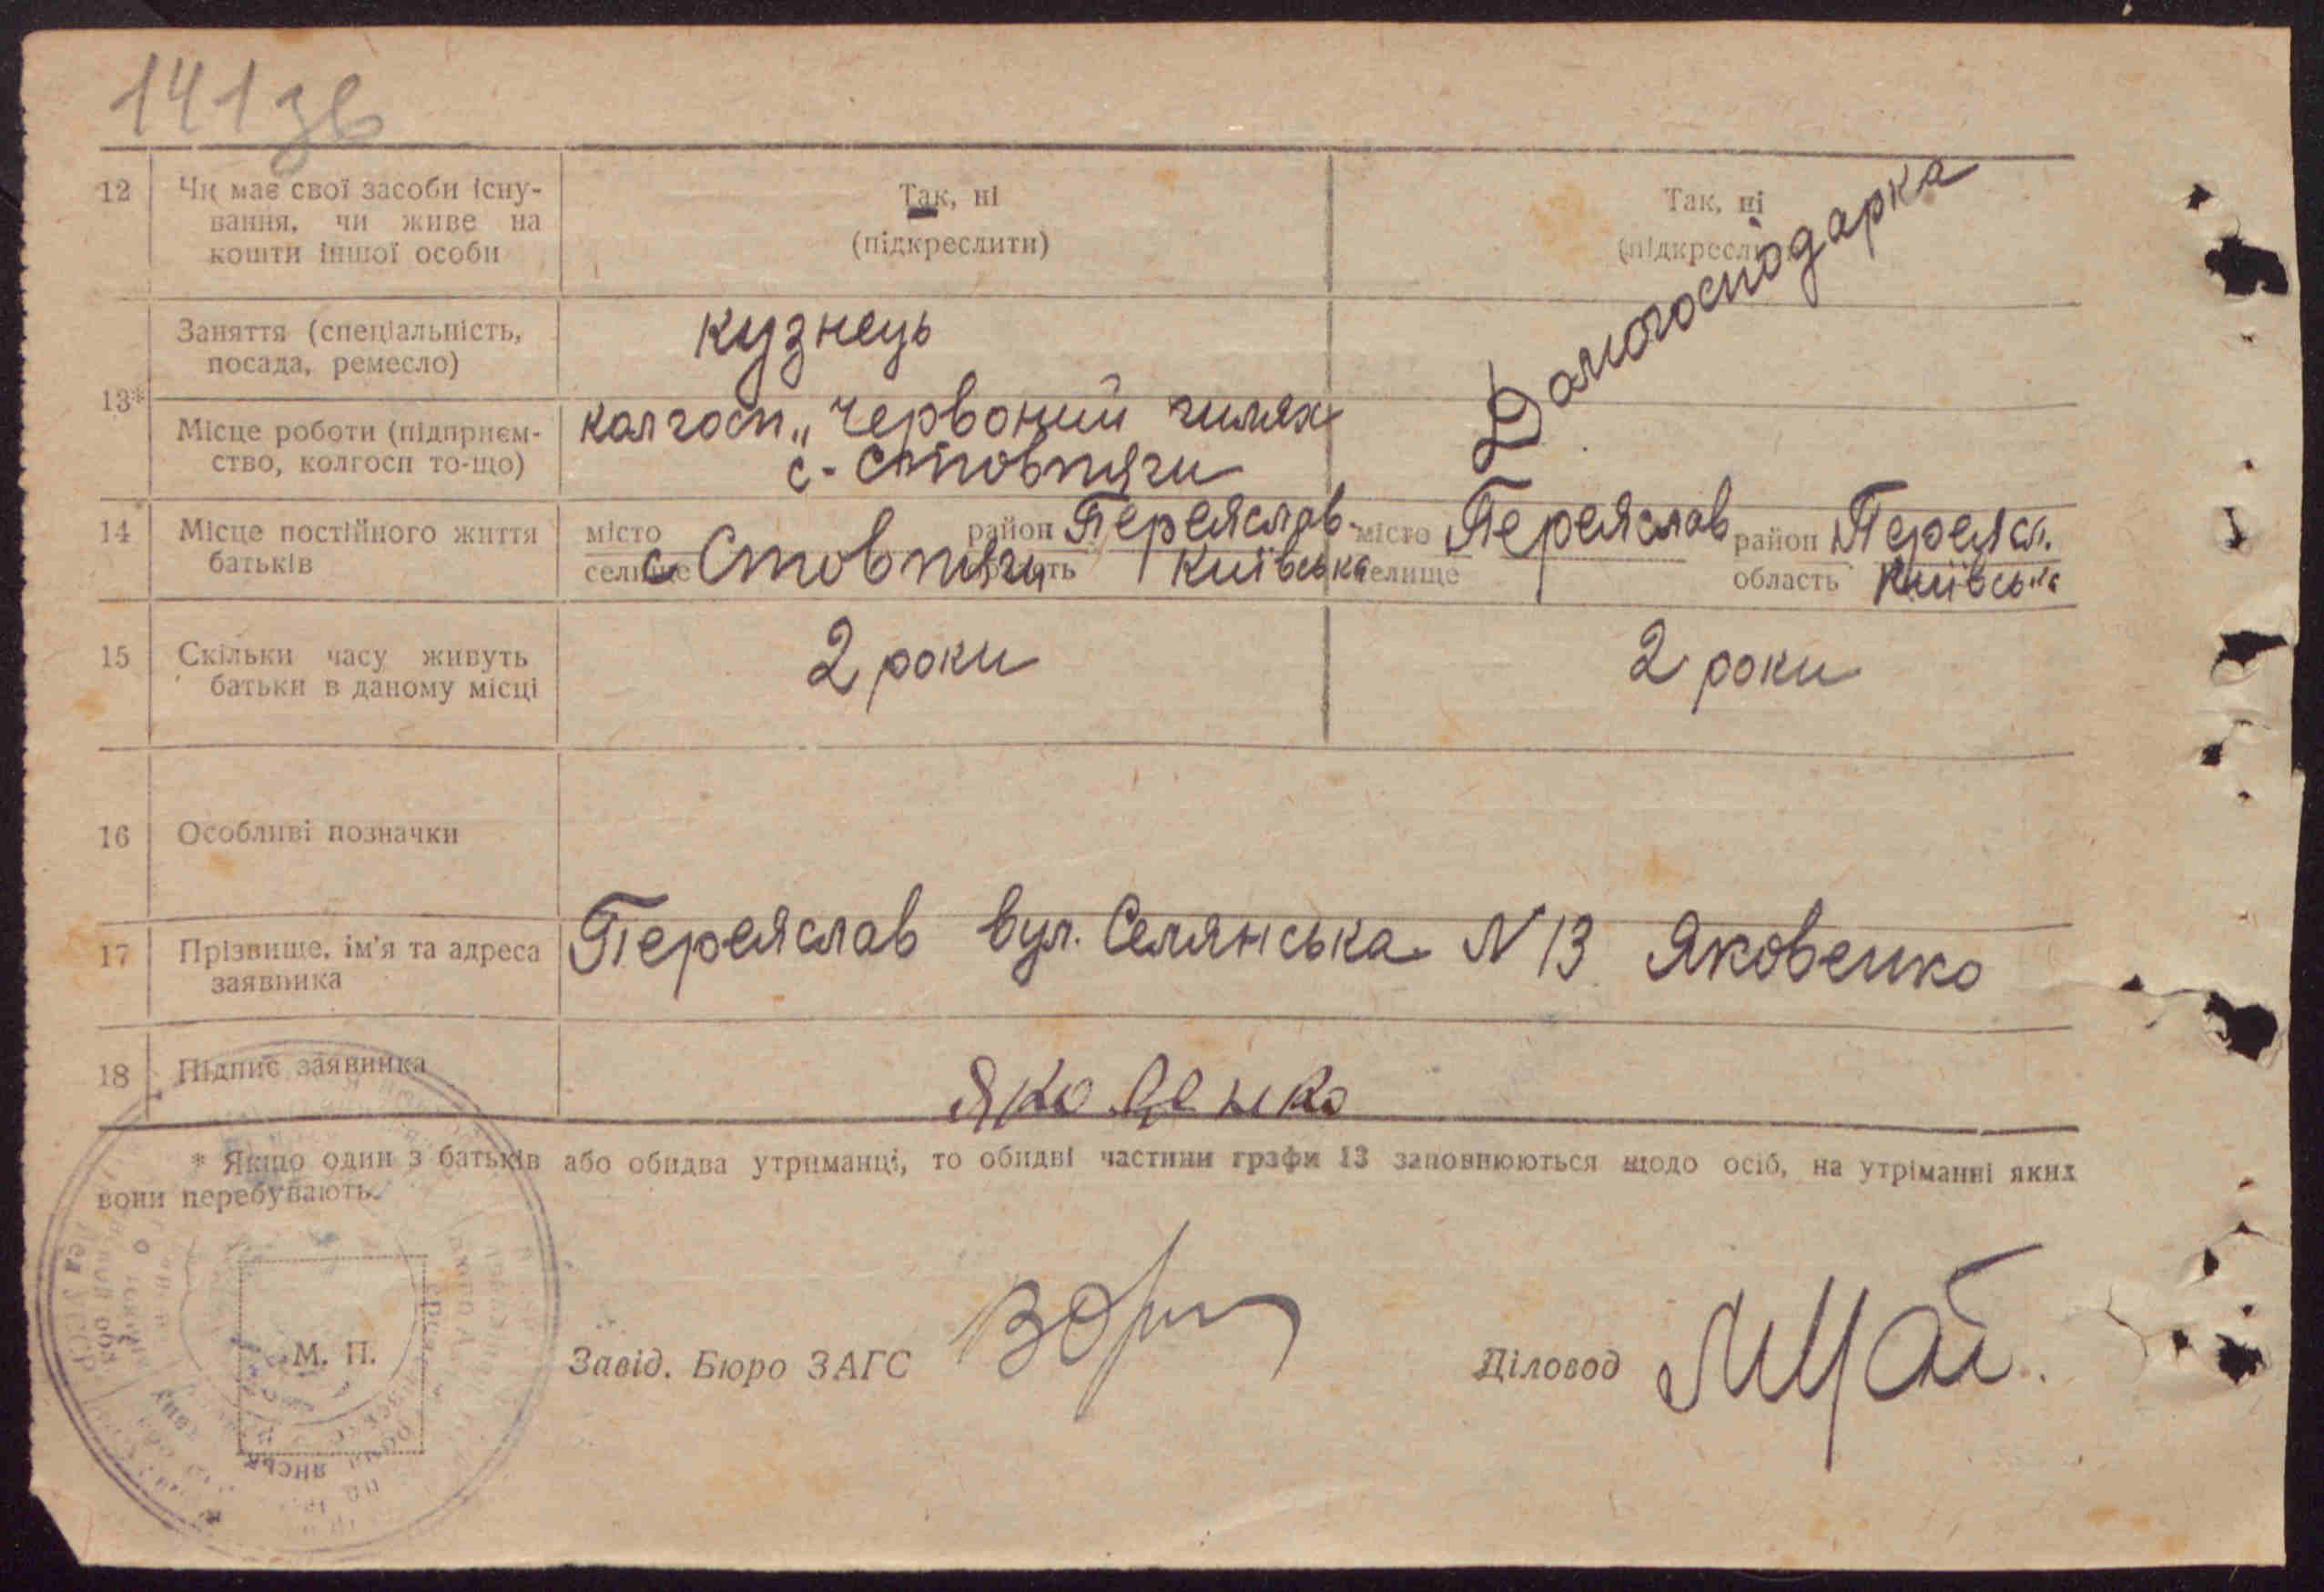 141зв
12 Чи має свої засоби існу- Так, ні Так, ні
вання, чи живе на (підкреслити) (підкресли
кошти іншої особи
Домогосподарка
Заняття (спеціальність, кузнець
посада, ремесло)
13*
Місце роботи (підприєм- колгосп „Червоний шлях
ство, колгосп то-що) с. Стовпяги
14 Місце постійного життя місто район Переяслав. місто Переяслав район Переясл.
батьків селище с Стовпяги область Київська селище область Київська
15 Скільки часу живуть 2 роки 2 роки
батьки в даному місці
16 Особливі позначки
17 Прізвище, ім'я та адреса Переяслав вул. Селянська N 13 Яковенко
заявника
18 Підпис заявника Яковенко
* Якщо один з батьків або обидва утриманці, то обидві частини графи 13 заповнюються щодо осіб, на утріманні яких
вони перебувають.
М. П.
Завід. Бюро ЗАГС
Діловод